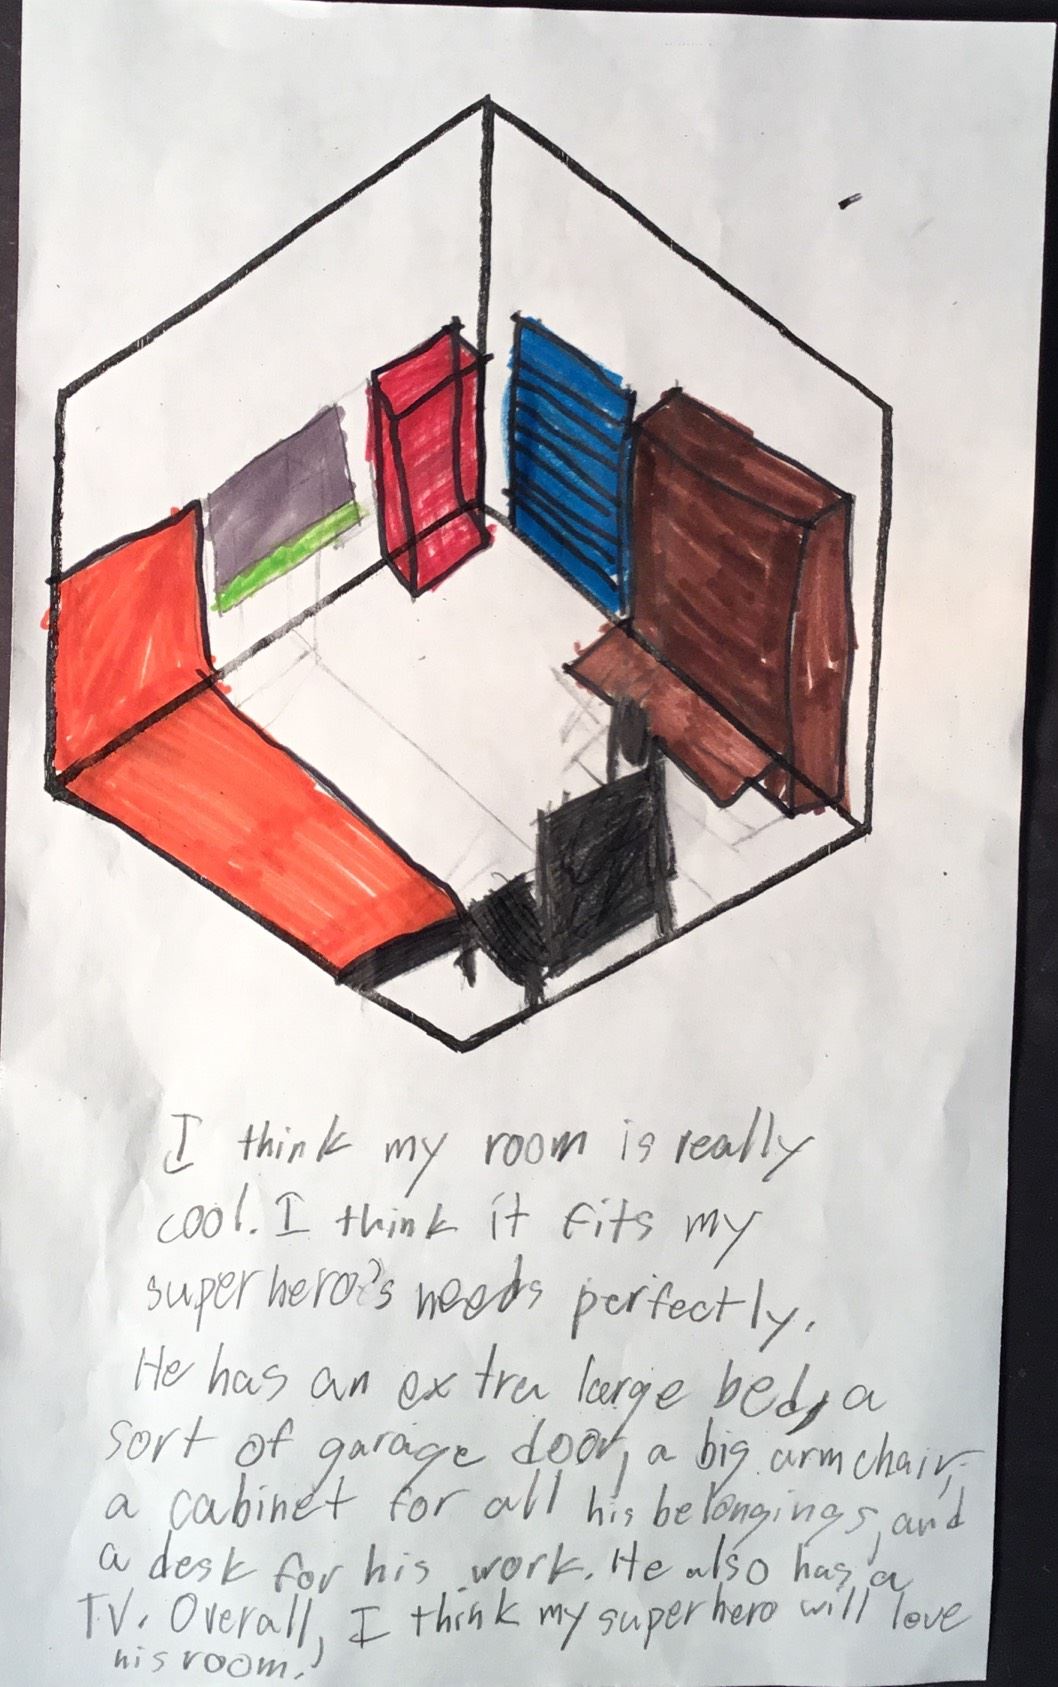 I think my room is really
cool. I think it fits my
superhero's needs perfectly.
He has an extra large bed, a
sort of garage door, a big armchair,
a cabinet for all his belongings, and
a desk for his work. He also has a
TV. Overall, I think my superhero will love
his room.